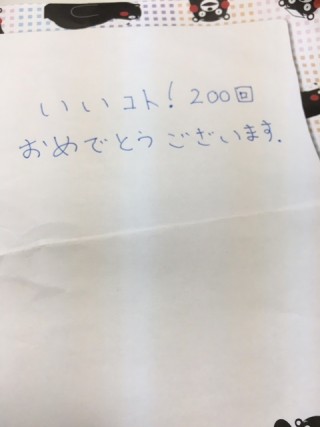 いいコト!200回
おめでとうございます.